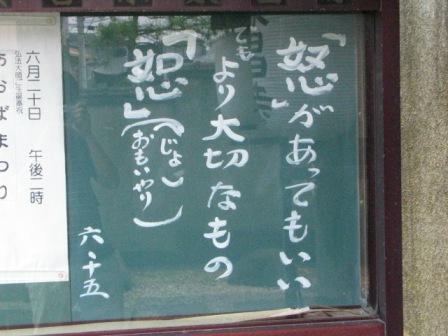 「怒」があってもいい
でも
より大切なもの
「恕」(じょ)
(おもいやり)
六・十五
六月二十日　午後二時
弘法大師ご生誕奉祝
あおばまつり